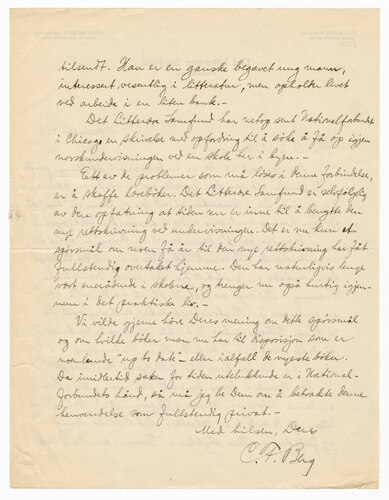 tilsendt. Han er en ganske begavet ung mann,
interessert vesentlig i litteratur, men opholder livet
ved arbeide i en liten bank.-
Det Litterære Samfund har netop sent Nationalforbundet
i Chicago en skrivelse med opfordring til å söke å få op igjen
norskundervisningen ved en skole her i byen.-
Ett av de problemer som må löses i denne forbindelse,
er å skaffe læreböker. Det Litterære Samfund er selvfölgelig
av den opfatning at tiden nu er inne til å benytte den
nye rettskrivning ved undervisningen. Det er nu kun et
spörsmål om noen få år til den nye rettskrivning har fått
fullstendig overtaket hjemme. Den har naturligvis lenge
vært enerådende i skolene, og trenger nu også hurtig igjen-
nem i det praktiske liv.-
Vi vilde gjerne höre Deres mening om dette spörsmål
og om hvilke böker man nu har til disposisjon som er
noenlunde "up to date" eller ialfall de nyeste böker.
Da imidlertid saken for tiden utelukkende er i National-
forbundets hånd, så må jeg be Dem om å betrakte denne
henvendelse som fullstendig privat.-
Med hilsen, Deres
C. F. Berg